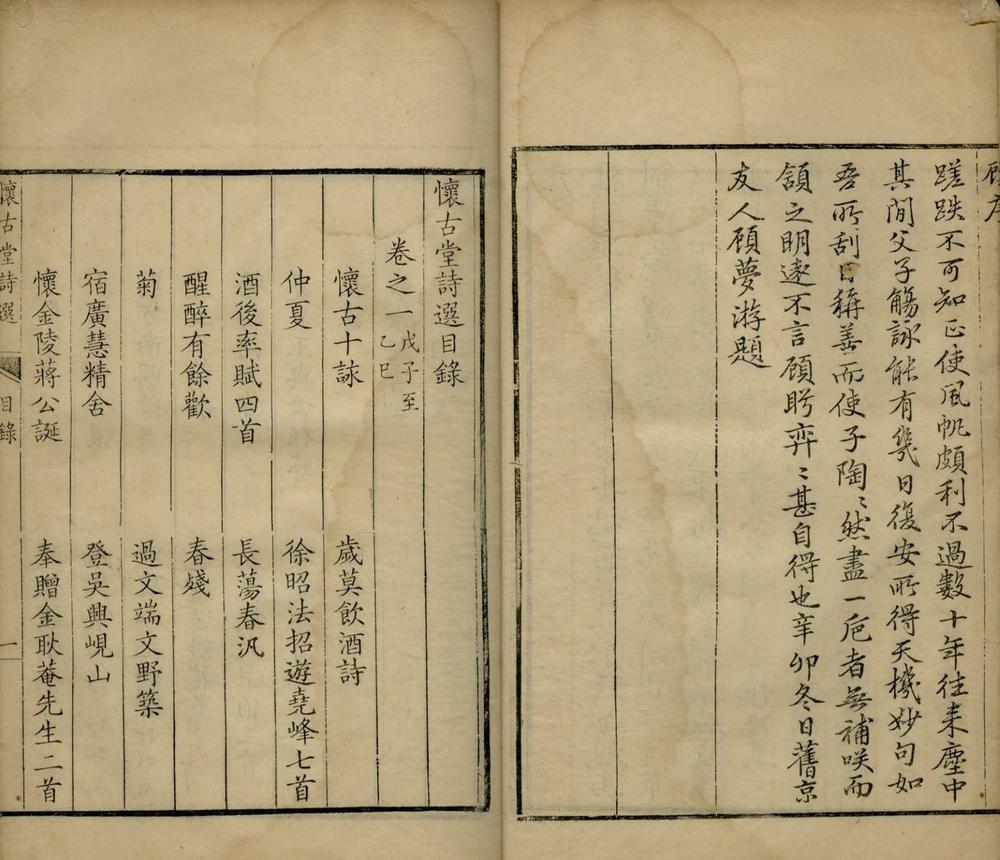 顧序
蹉跌不可知正使風帆頗利不過數十年往來塵中
其間父子觴詠能有幾日復安所得天機妙句如
吾所刮目稱善而使子陶〻然盡一卮者無補咲而
頷之明遠不言顧眄弈〻甚自得也辛卯冬日舊京
友人顧夢游題
懷古堂詩選目錄
卷之一 戊子至乙巳
懷古十詠 歲莫飲酒詩
仲夏 徐昭法招遊堯峰七首
酒後率賦四首 長蕩春汎
醒醉有餘歡 春殘
菊 過文端文野築
宿廣慧精舍 登吳興峴山
懷金陵蔣公誕 奉贈金耿菴先生二首
懷古堂詩選 目錄 一